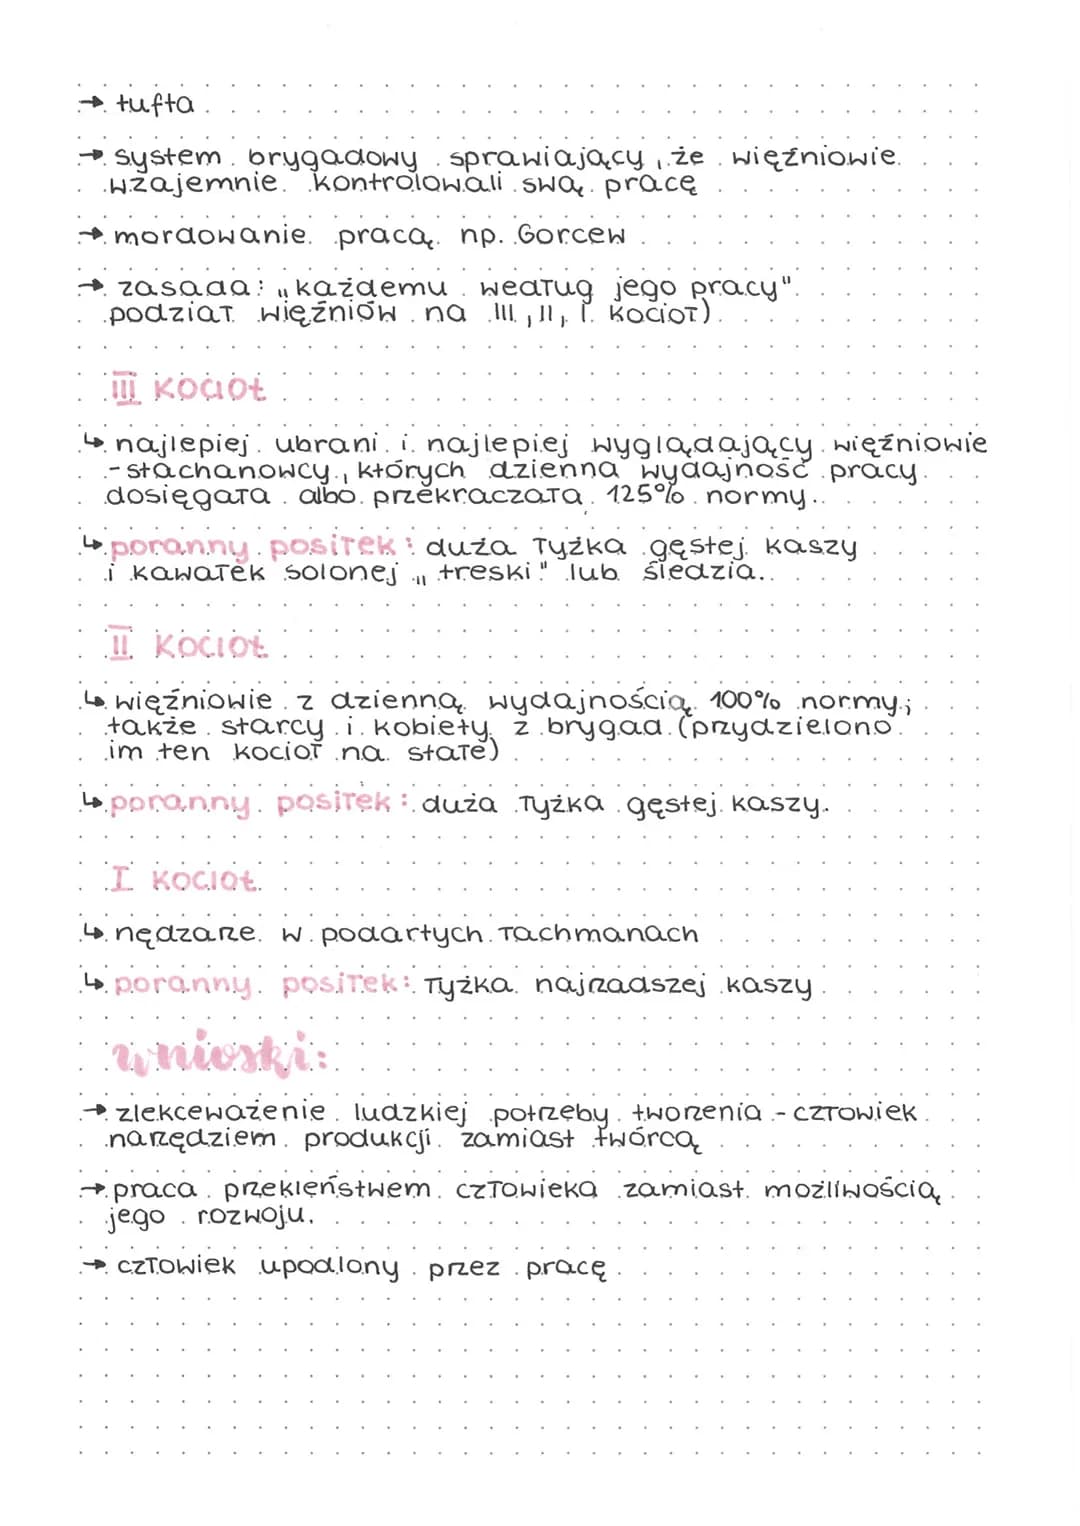 → tufta
→ system brygadowy sprawiający, że więźniowie
wzajemnie kontrolowali swą pracę
→ mordowanie pracą np. Gorcew
→ zasada: „każdemu według jego pracy"
podział więźniów na III, II, I kocioł)
III kocioł
↳ najlepiej ubrani i najlepiej wyglądający więźniowie
- stachanowcy, których dzienna wydajność pracy
dosięgała albo przekraczała 125% normy.
↳ poranny posiłek: duża łyżka gęstej kaszy
i kawałek solonej „treski" lub śledzia.
II kocioł
↳ więźniowie z dzienną wydajnością 100% normy;
także starcy i kobiety z brygad (przydzielono
im ten kocioł na stałe)
↳ poranny posiłek: duża łyżka gęstej kaszy.
I kocioł
↳ nędzarze w podartych łachmanach
↳ poranny posiłek: łyżka najrzadszej kaszy
wnioski:
→ zlekceważenie ludzkiej potrzeby tworzenia - człowiek
narzędziem produkcji zamiast twórcą
→ praca przekleństwem człowieka zamiast możliwością
jego rozwoju.
→ człowiek upodlony przez pracę